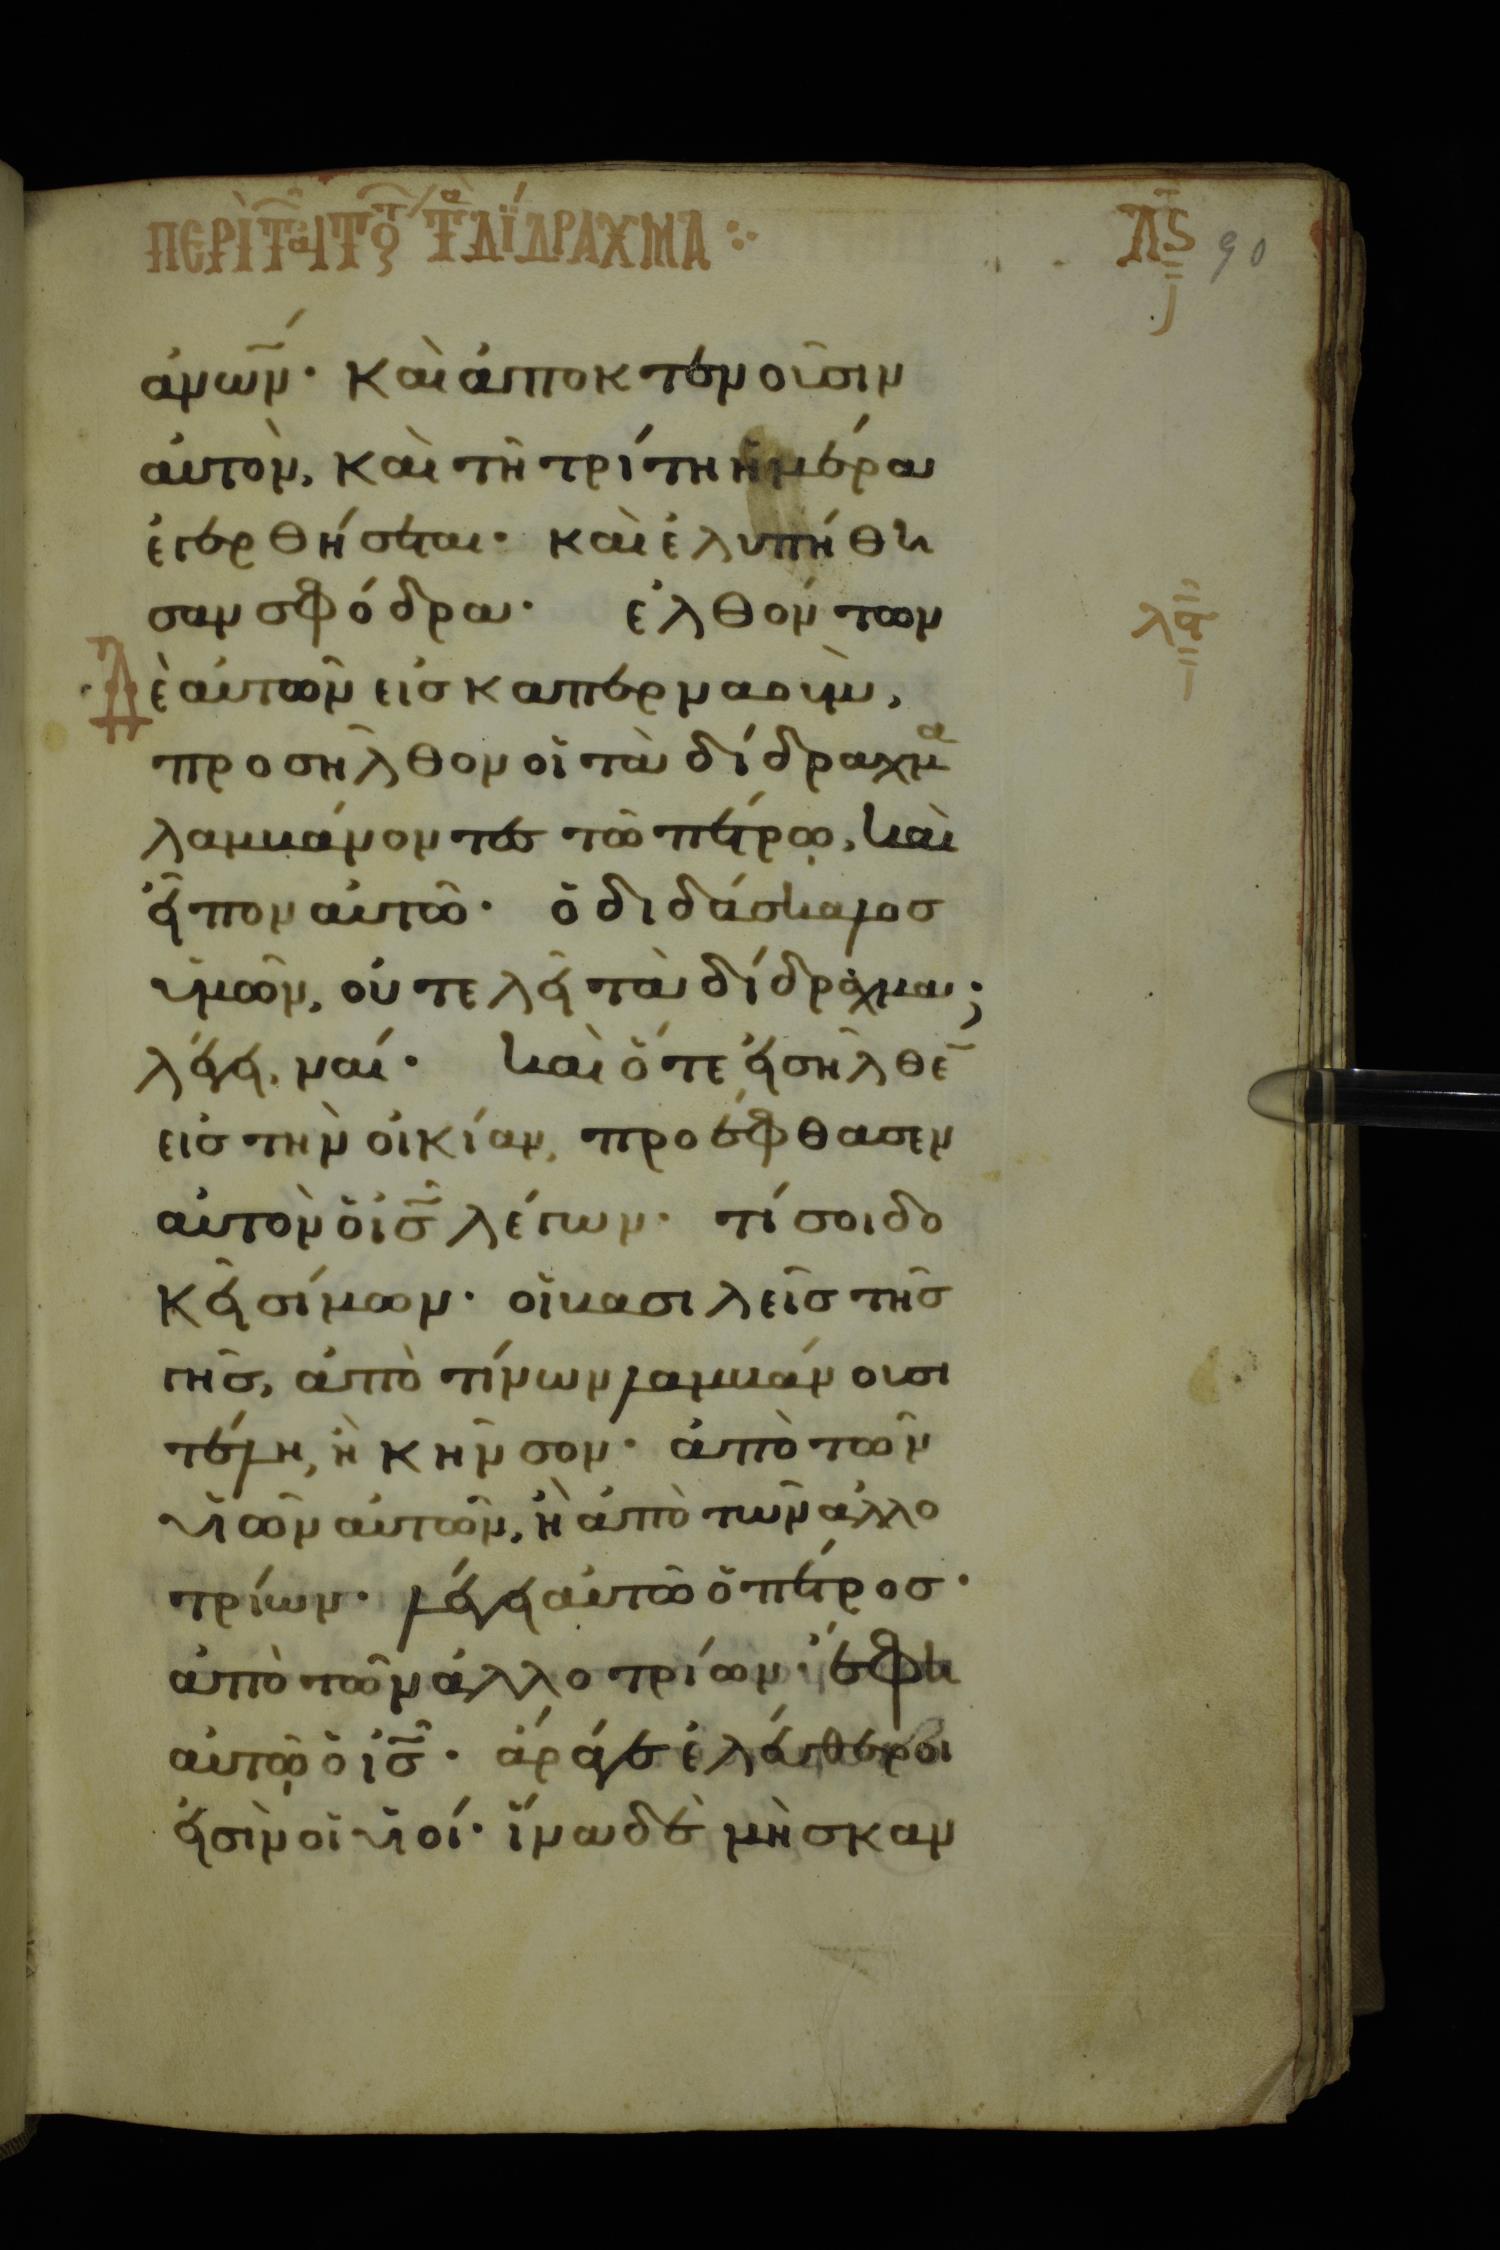 ΠΕΡῚ Τῶ̑ ΑΙΤȣ́ΤῶΝ ΤᾺ ΔΊΔΡΑΧΜΑ ⁘ λ̅ς̅ 90
ἀν̅ω̅ν̅· καὶ ἀποκτενοῦσιν
αὐτὸν, καὶ τῆ τρίτη ἡμέρα
ἐγερθήσεται· καὶ ἐλυπήθη
σαν σφόδρα· ἐλθόντων λα
Δὲ αὐτῶν εἰσ καπερναοὺμ,
προσῆλθον οἱ τὰ δίδραχμα
λαμβάνοντεσ τῶ πέτρω, καὶ
εἶπον αὐτῶ· ὁ διδάσκαλοσ
ὑμῶν, οὐ τελεῖ τὰ δίδραχμα;
λέγει, ναί· καὶ ὅτε εἰσῆλθε̅
εἰσ τὴν οἰκίαν, προέφθασεν
αὐτὸν ὁ ἰ̅σ̅ λέγων· τί σοι δο
κεῖ σίμων· οἱ βασιλεῖσ τῆσ
γῆσ, ἀπὸ τίνων λαμβάνουσι
τέλη, ἢ κῆνσον· ἀπὸ τῶν
υἱῶν αὐτῶν, ἢ ἀπὸ τῶν ἀλλο
τρίων· λέγει αὐτῶ ὁ πέτροσ·
ἀπὸ τῶν ἀλλοτρίων· ἔφη
αὐτῷ ὁ ἰ̅σ̅· ἄρά γε ἐλεύθεροι
εἰσὶν οἱ υἱοί· ἵνα δὲ μὴ σκαν